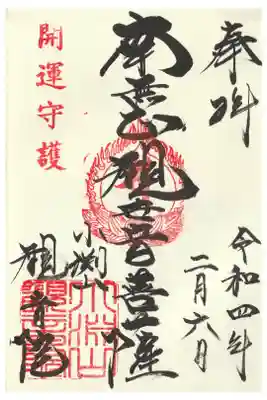 奉拝
令和四年
二月六日
南無正観世音菩薩
小渕山
観音院
開運守護